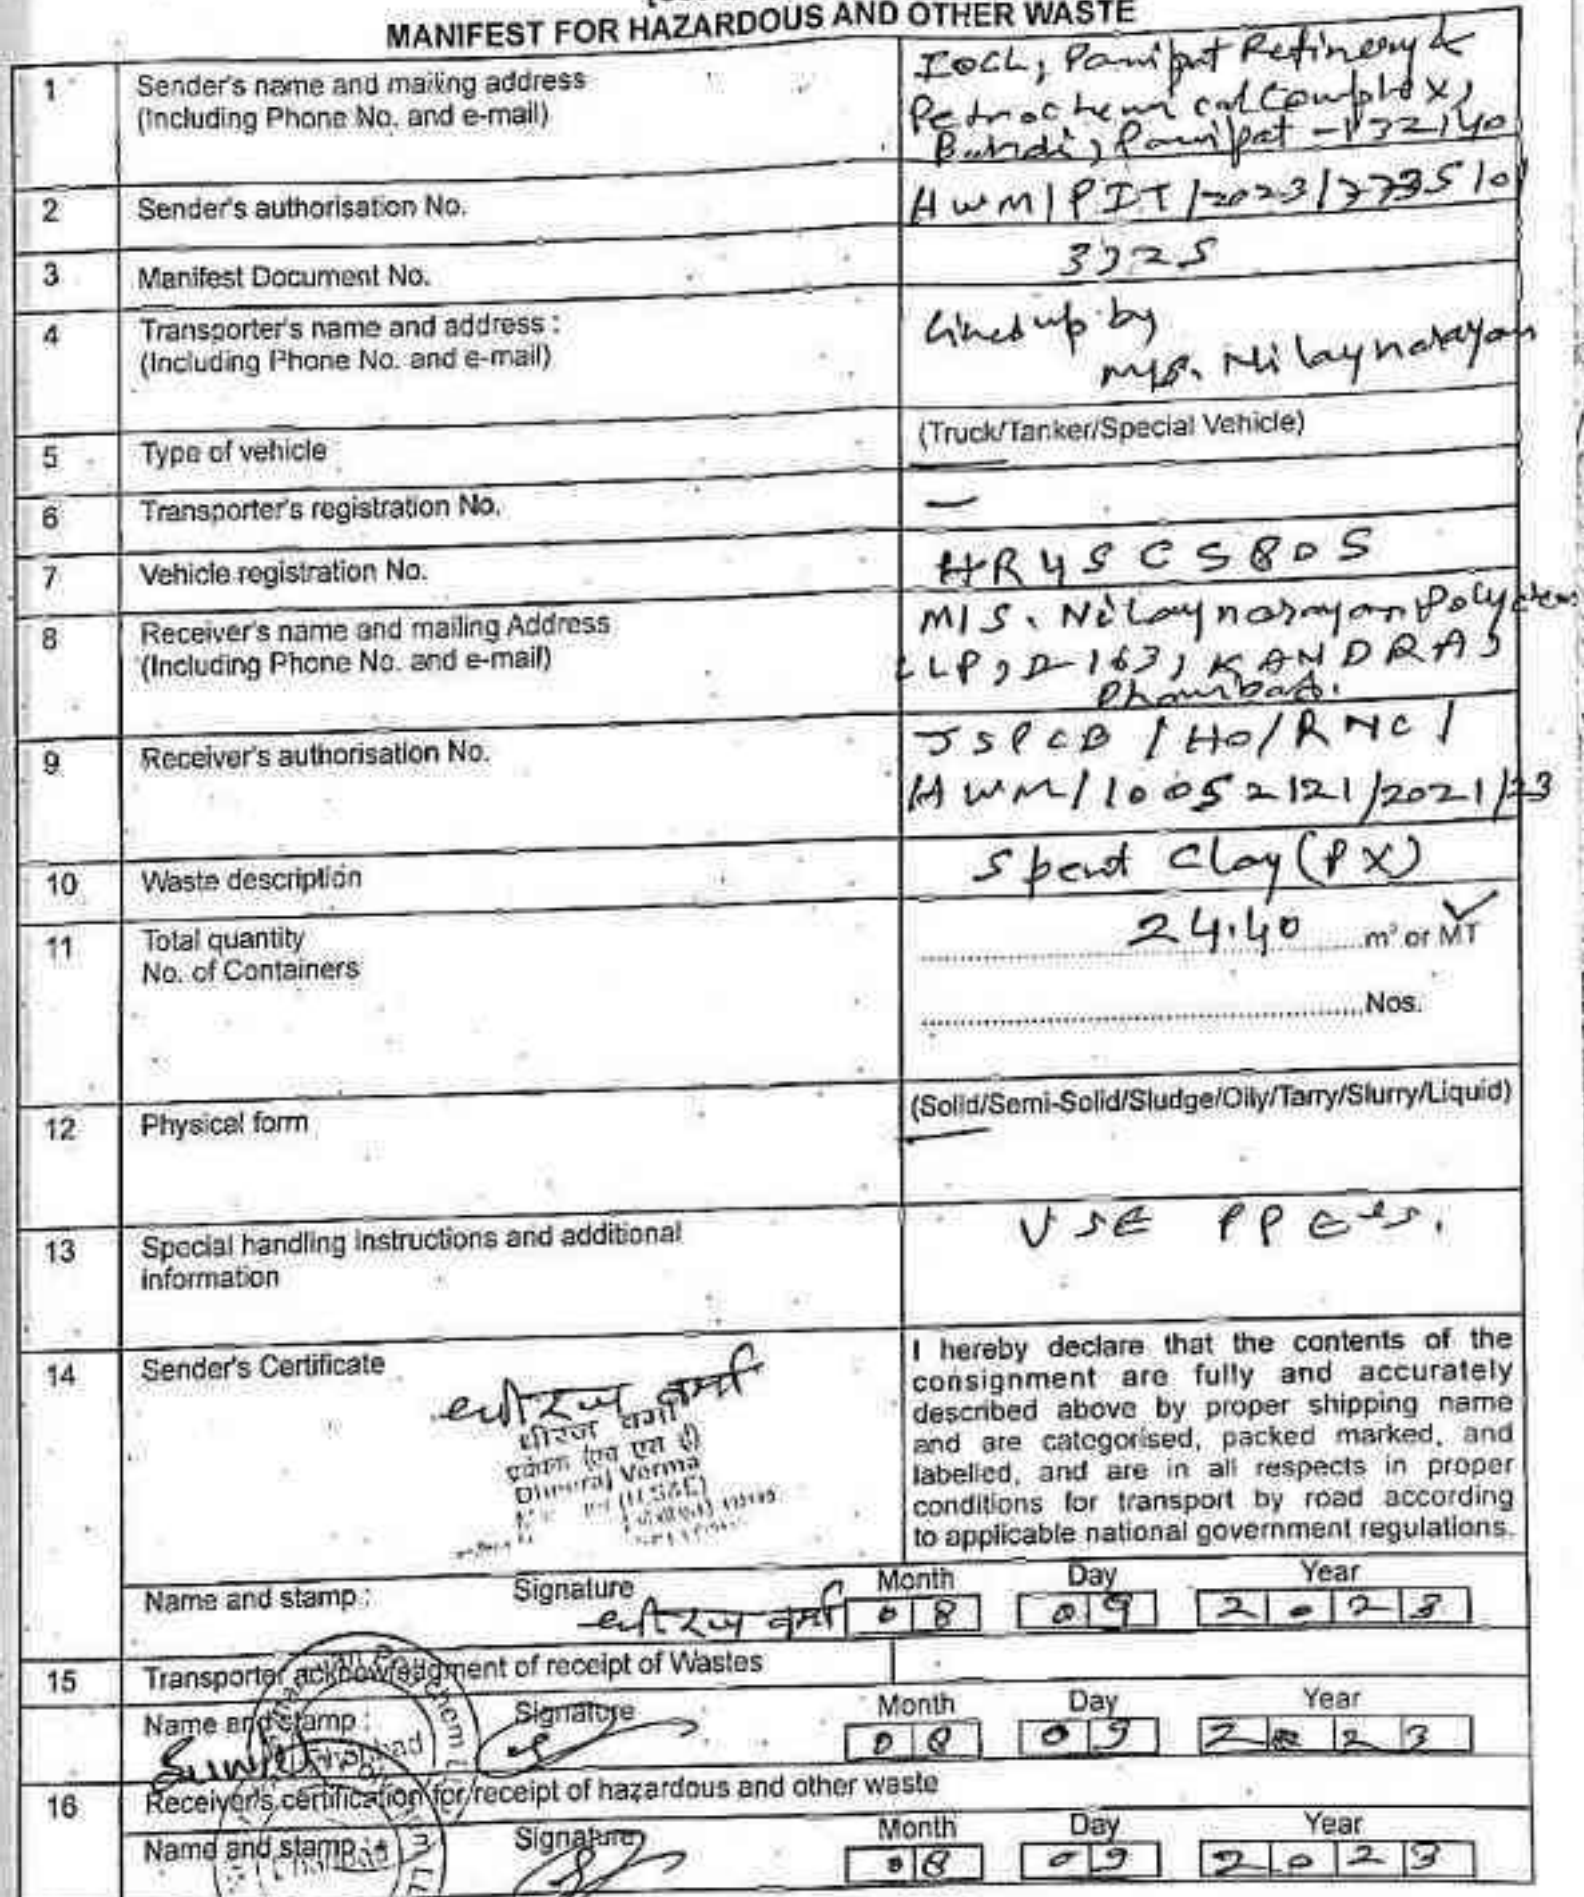 MANIFEST FOR HAZARDOUS AND OTHER WASTE
1 Sender's name and mailing address
(Including Phone No. and e-mail)
IOCL, Panipat Refinery &
Petrochemical Complex,
Panipat - 132140
2 Sender's authorisation No.
HWM/PIT/2023/773510/
3 Manifest Document No.
3725
4 Transporter's name and address :
(Including Phone No. and e-mail)
Lined up by
M/s. Nilaynarayan
5 Type of vehicle
(Truck/Tanker/Special Vehicle)
6 Transporter's registration No.
—
7 Vehicle registration No.
HR45C5805
8 Receiver's name and mailing Address
(Including Phone No. and e-mail)
M/S. Nilaynarayan Polychem
LLP, D-163, KANDRA,
Dhanbad.
9 Receiver's authorisation No.
JSPCB/HO/RNC/
HWM/10052121/2021/23
10 Waste description
Spent Clay (PX)
11 Total quantity
No. of Containers
24.40 m³ or MT ✓
Nos.
12 Physical form
(Solid/Semi-Solid/Sludge/Oily/Tarry/Slurry/Liquid)
13 Special handling instructions and additional
information
USE PPE's.
14 Sender's Certificate
धीरज वर्मा
धीरज वर्मा
(एच एस ई)
Dheeraj Verma
(HS&E)
I hereby declare that the contents of the
consignment are fully and accurately
described above by proper shipping name
and are categorised, packed marked, and
labelled, and are in all respects in proper
conditions for transport by road according
to applicable national government regulations.
Name and stamp : Signature Month Day Year
धीरज वर्मा 08 09 2023
15 Transporter acknowledgment of receipt of Wastes
Name and stamp : Signature Month Day Year
08 09 2023
16 Receiver's certification for receipt of hazardous and other waste
Name and stamp : Signature Month Day Year
08 09 2023